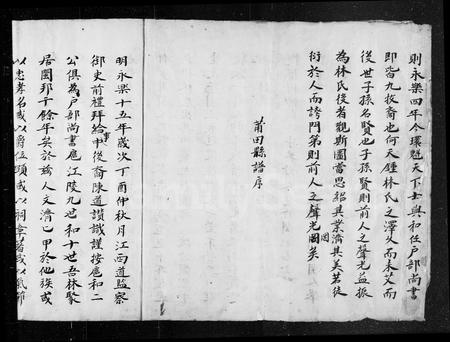 則永樂四年今環魁天下士與和任戶部尚書
即皆九牧裔也何天鍾林氏之澤久而未艾而
後世子孫名賢也子孫賢則前人之聲光益振
為林氏後者觀斯圖當思紹其業濟其美若徒
衍於人而誇門第則前人之聲光國矣
莆田縣譜序
明永樂十五年歲次丁酉仲秋月江南道監察
御史前禮科給事中後裔陳道讚謹按扈和二
公俱為戶部尚書扈江陵九世和十世吾林聚
居國邦千餘年矣於茲人文濟甲於他族或
以忠孝名或以爵位顯或以祠章著或以氣節